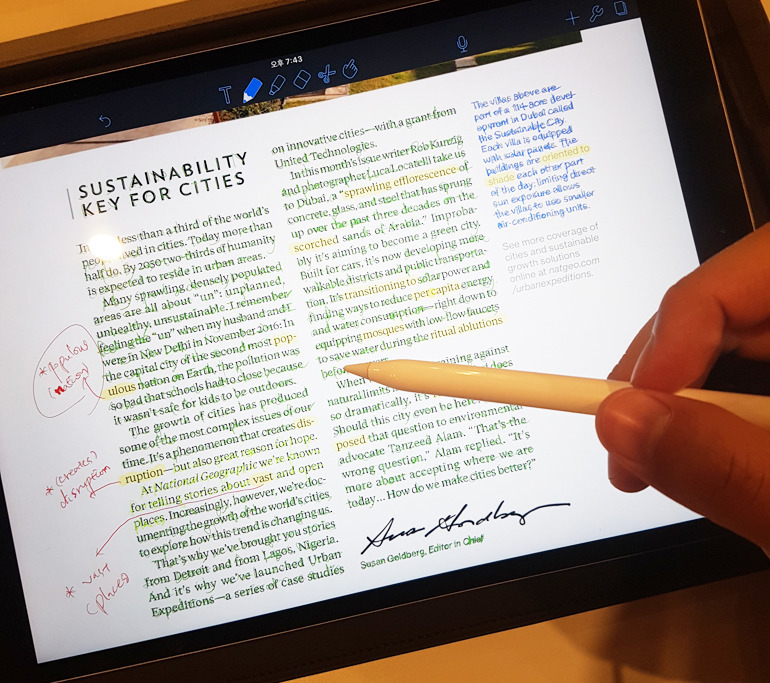 오후 7:43
SUSTAINABILITY
KEY FOR CITIES
less than a third of the world's
in cities. Today more than
half do. By 2050 two-thirds of humanity
is expected to reside in urban areas.
Many sprawling, densely populated
areas are all about "un": unplanned,
unhealthy, unsustainable. I remember
feeling the "un" when my husband and I
were in New Delhi in November 2016: In
the capital city of the second most pop-
ulous nation on Earth, the pollution was
so bad that schools had to close because
it wasn't safe for kids to be outdoors.
The growth of cities has produced
some of the most complex issues of our
time. It's a phenomenon that creates dis-
ruption—but also great reason for hope.
At National Geographic we're known
for telling stories about vast and open
places. Increasingly, however, we're doc-
umenting the growth of the world's cities,
to explore how this trend is changing us.
That's why we've brought you stories
from Detroit and from Lagos, Nigeria.
And it's why we've launched Urban
Expeditions—a series of case studies
*populous
(nation)
*(creates)
disruption
* vast
(places)
on innovative cities—with a grant from
United Technologies.
In this month's issue writer Rob Kunzig
and photographer Luca Locatelli take us
to Dubai, a "sprawling efflorescence of
concrete, glass, and steel that has sprung
up over the past three decades on the
scorched sands of Arabia." Improba-
bly it's aiming to become a green city.
Built for cars, it's now developing more
walkable districts and public transporta-
tion. It's transitioning to solar power and
finding ways to reduce per capita energy
and water consumption—right down to
equipping mosques with low-flow faucets
to save water during the ritual ablutions
before
When against
natural limits does
so dramatically, it's
Should this city even be
posed that question to environmental
advocate Tanzeed Alam. "That's the
wrong question," Alam replied. "It's
more about accepting where we are
today… How do we make cities better?"
Susan Goldberg, Editor in Chief
The villas above are
part of a 114-acre devel-
opment in Dubai called
the Sustainable City.
Each villa is equipped
with solar panels. The
buildings are oriented to
shade each other part
of the day; limiting direct
sun exposure allows
the villas to use smaller
air-conditioning units.
See more coverage of
cities and sustainable
growth solutions
online at natgeo.com
/urbanexpeditions.